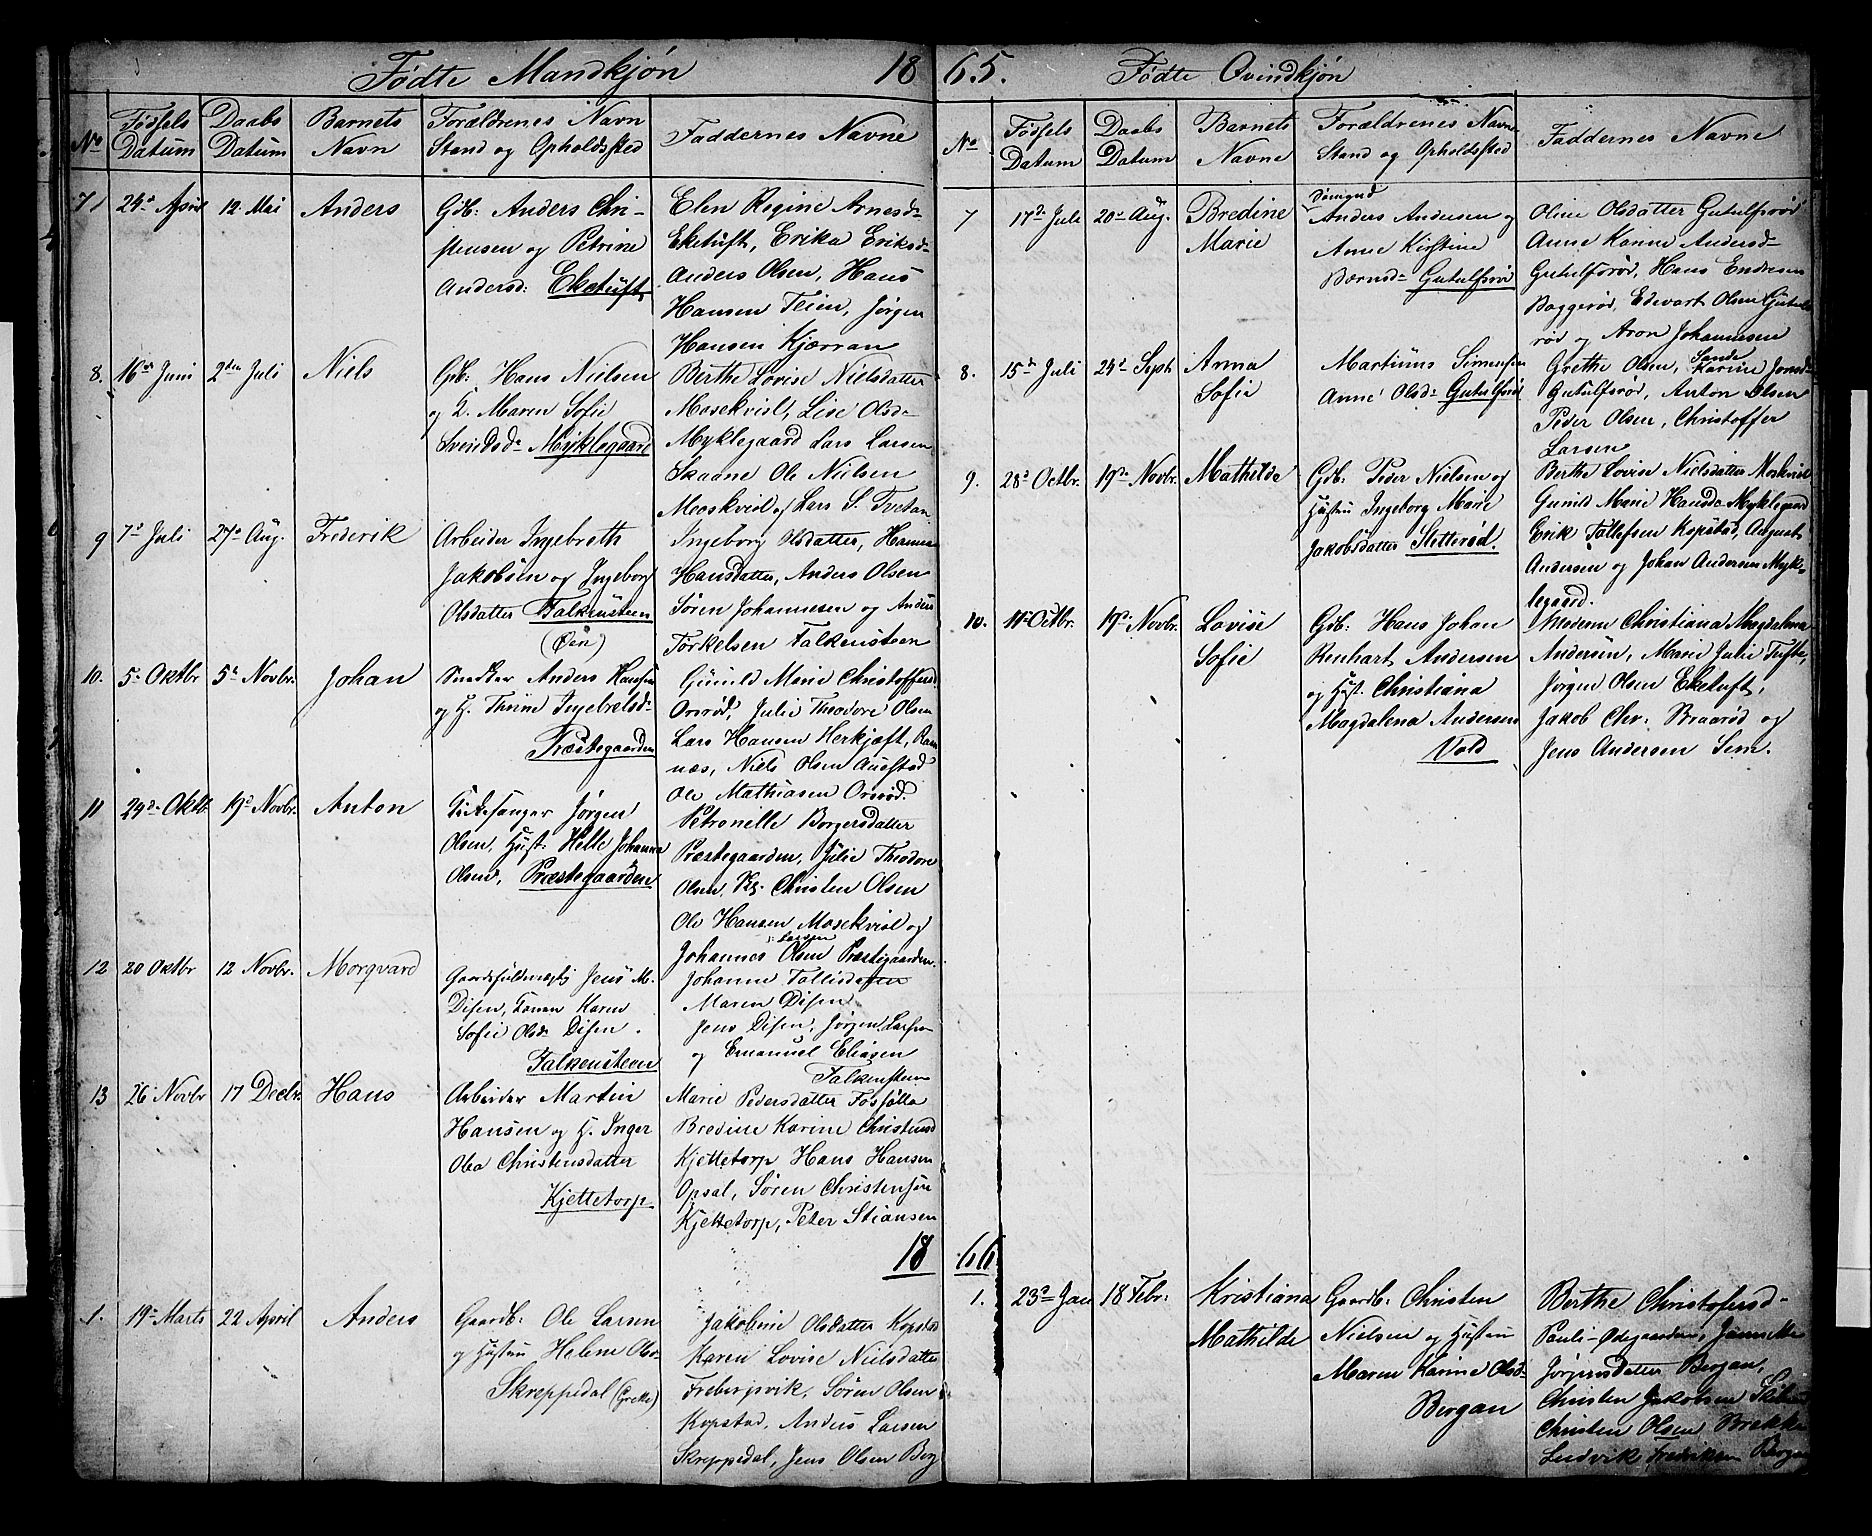 Fødte Mandkjøn 18
No
Fødsels Datum
Daabs Datum
Barnets Navn
Forældrenes Navn
Stand og Opholdssted
Faddernes Navne
7 24de April 12 Mai Anders
Gdb: Anders Chri-
stensen og Petrine
Andersd: Eketuft
Elen Regine Arnesd-
Eketuft, Erika Eriksd-
Anders Olsen, Hans
Hansen Teien, Jørgen
Hansen Kjærran
8. 16de Juni 2den Juli Niels
Gdb: Hans Nielsen
og Maren Sofie
Svendsd- Myklegaard
Berthe Lovise Nielsdatter
Mosekvisl, Lise Olsd-
Myklegaard Lars Larsen
Skaane Ole Nielsen
Moskvisl og Lars S. Tvetan
9 7de Juli 27de Aug. Frederik
Arbeider Ingebreth
Jakobsen og Ingeborg
Olsdatter Falkensteen
(Øen)
Ingeborg Olsdatter, Hanna
Hansdatter, Anders Olsen
Søren Johannesen og Anders
Torkelsen Falkensteen
10. 5. Oktbr 5. Novbr. Johan
Anders Hansen
og H. Thrine Ingebretsd-
Præstegaarden
Gunild Marie Christoffersd.
Orerød, Julie Theodore Olsen
Lars Hansen Herkjæft, Ram
næs, Niels Olsen Auestad
Ole Mathiasen Orerød.
11 24de Oktb 19de Novbr. Anton
Kirkesanger Jørgen
Olsen, Hust. Helle Johanna
Olsen, Præstegaarden
Petronelle Borgersdatter
Præstegaarden, Julie Theodore
Olsen, Christen Olsen
Ole Hansen Mosekvisl og
Larsen
Johannes Olsen Præstegaarden.
12 20 Oktbr 12 Novbr. Morqvard
Gaardsfuldmægtig Jens M.
Disen, Karen
Sofie Olsd Disen.
Falkensteen
Johanne Tollisdatter
Maren Disen
Jens Disen, Jørgen Larsen
og Emanuel Eliasen
Falkensteen
13 26 Novbr 17 Decbr. Hans
Arbeider Martin
Hansen og H. Inger
Olea Christensdatter
Kjettetorp
Marie Pedersdatter
Bredine Karine Christensd
Kjettetorp Hans Hansen
Opsal, Søren Christensen
Kjettetorp, Peter Stiansen
18
1. 19de Marts 22 April Anders
Gaardb: Ole Larsen
og Hustru Helene Olsd-
Skreppedal (Grette)
Jakobine Olsdatter Kopstad
Karen Lovise Nielsdatter
Frebergsvik, Søren Olsen
Kopstad, Anders Larsen
Skreppedal, Jens Olsen Berg
65. Fødte Qvindkjøn
No
Fødsels Datum
Daabs Datum
Barnets Navne
Forældrenes Navne
Stand og Opholdssted
Faddernes Navne
7 17de Juli 20de Aug. Bredine
Marie
Sømand
Anders Andersen og
Anne Kirstine
Bærnsd- Gutulfsrød
Oline Olsdatter Gutulfsrød
Anne Karine Andersd-
Gutulfsrød, Hans Endresen
Baggerød, Edevart Olsen Gutulfs
rød og Aron Johannesen
8. 15de Juli 24de Septb Anna
Sofie
Martinus Simensen
Anne Olsd- Gutulfsrød
Sande
Grethe Olsen, Karine Jonsd-
Gutulfsrød, Anton Olsen
Peder Olsen, Christoffer
Larsen
9. 28de Octbr. 19de Novbr. Mathilde
Gdb: Peder Nielsen og
Hustru Ingeborg Marie
Jakobsdatter Sletterød.
Berthe Lovise Nielsdatter Moskvisl
Gunild Marie Hansd- Myklegaard
Erik Tollefsen Kopstad, August
Andersen og Johan Andersen Myk-
legaard.
10. 11te Octbr. 19de Novbr. Lovise
Sofie
Gdb: Hans Johan
Renhart Andersen
og Hust. Christiana
Magdalena Andersen
Vold
Moderen Christiana Magdalena
Andersen, Marie Julie Tufte,
Jørgen Olsen Eketuft,
Jakob Chr: Braarød og
Jens Andersen Sem.
66
1. 23de Jan 18 Febr. Kristiana
Mathilde
Gaardb: Christen
Nielsen og Hustru
Maren Karine Olsd-
Bergan
Berthe Christofersd-
Pauli-Ødegaarden, Jannette
Jørgensdatter Bergan,
Christen Jakobsen
Christen Olsen Brekke
Ludvik Fredriksen Bergan